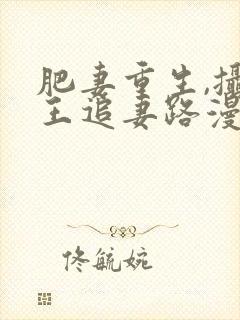 肥妻重生,攝
王追妻路漫
佟毓婉